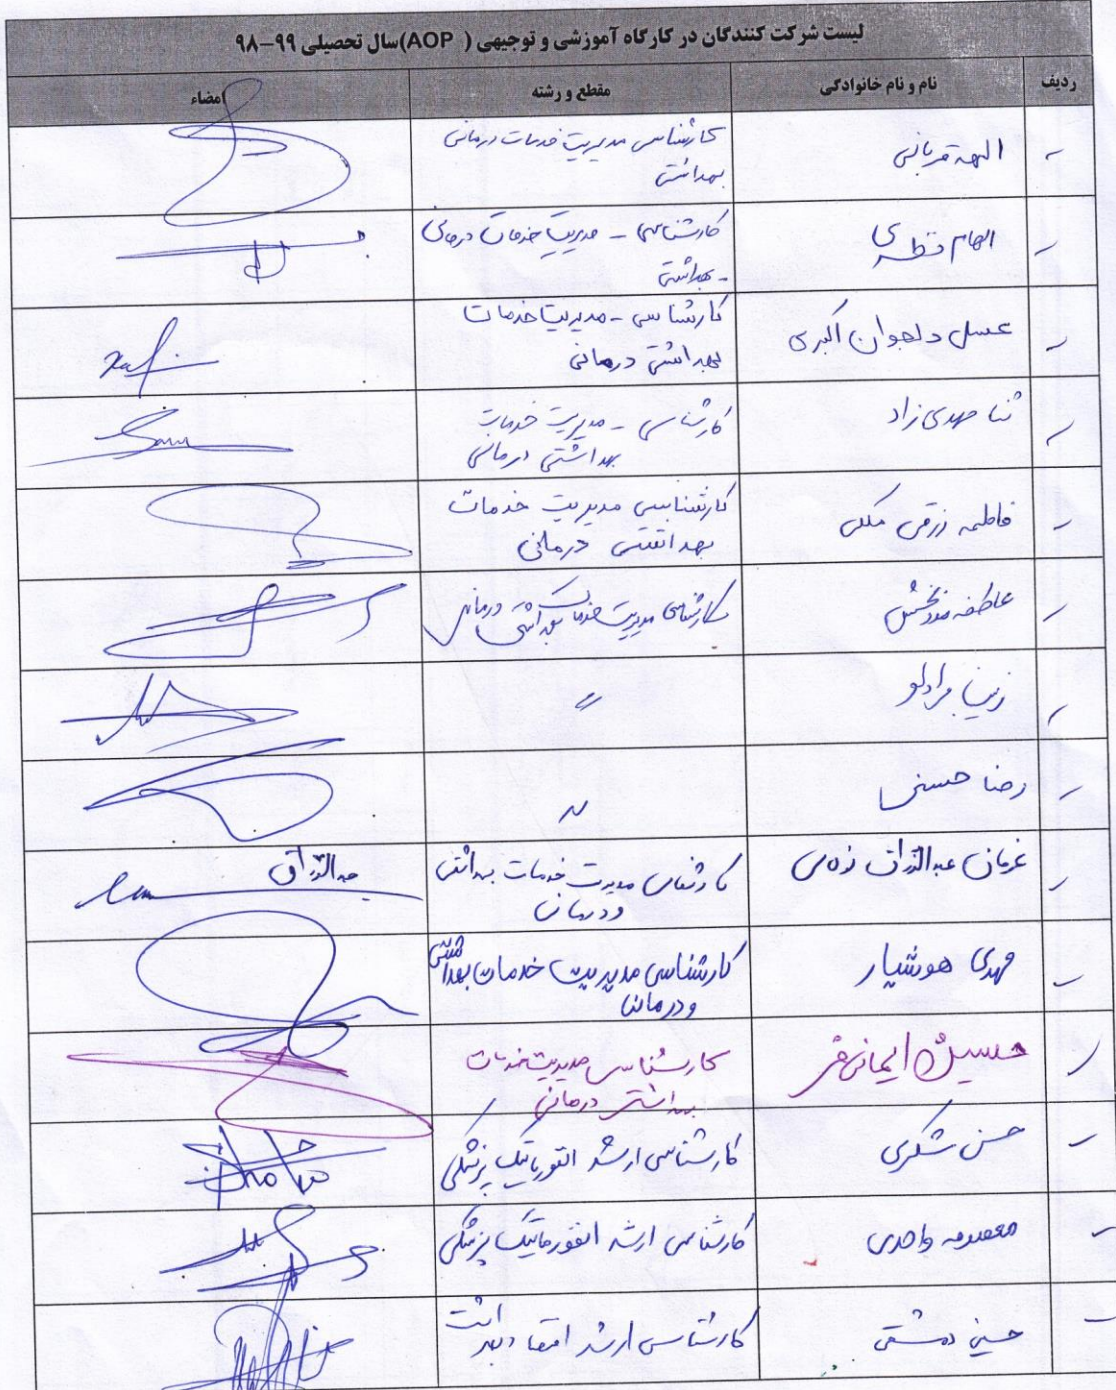 لیست شرکت کنندگان در کارگاه آموزشی و توجیهی ( AOP)سال تحصیلی ۹۹-۹۸
ردیف نام و نام خانوادگی مقطع و رشته امضاء
الهه قربانی کارشناسی مدیریت خدمات درمانی
بهداشتی
الهام کارشناسی - مدیریت خدمات درمانی
- بهداشتی
عسل دلجوان اکبری کارشناسی - مدیریت خدمات
بهداشتی درمانی
ثنا مهدی زاد کارشناسی - مدیریت خدمات
بهداشتی درمانی
فاطمه زرقی ملکی کارشناسی مدیریت خدمات
بهداشتی درمانی
عاطفه کارشناسی مدیریت خدمات بهداشتی درمانی
زیبا مرادلو "
رضا حسنی "
عبدالرزاق کارشناسی مدیریت خدمات بهداشتی عبدالرزاق
و درمانی
مهدی هوشیار کارشناسی مدیریت خدمات بهداشتی
و درمانی
ایمانی فر کارشناسی مدیریت خدمات
بهداشتی درمانی
حسن شکری کارشناسی ارشد انفورماتیک پزشکی
معصومه واحدی کارشناسی ارشد انفورماتیک پزشکی
دمشقی کارشناسی ارشد اقتصاد بهداشت